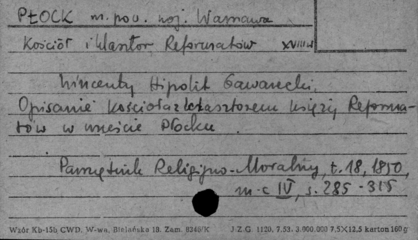 PŁOCK m. pow. woj. Warszawa
Kościół i klasztor Reformatów XVIII w
Wincenty Hipolit Gawarecki.
Opisanie kościoła z klasztorem księży Reforma-
tów w mieście Płocku
Pamiętnik Religijno-Moralny, t. 18, 1850,
m-c IV, s. 285 - 315
Wzór Kb-15b CWD. W-wa, Bielańska 18. Zam. 8240/K J.Z.G. 1120. 7.53. 3.000.000 7,5×12,5 karton 160 g